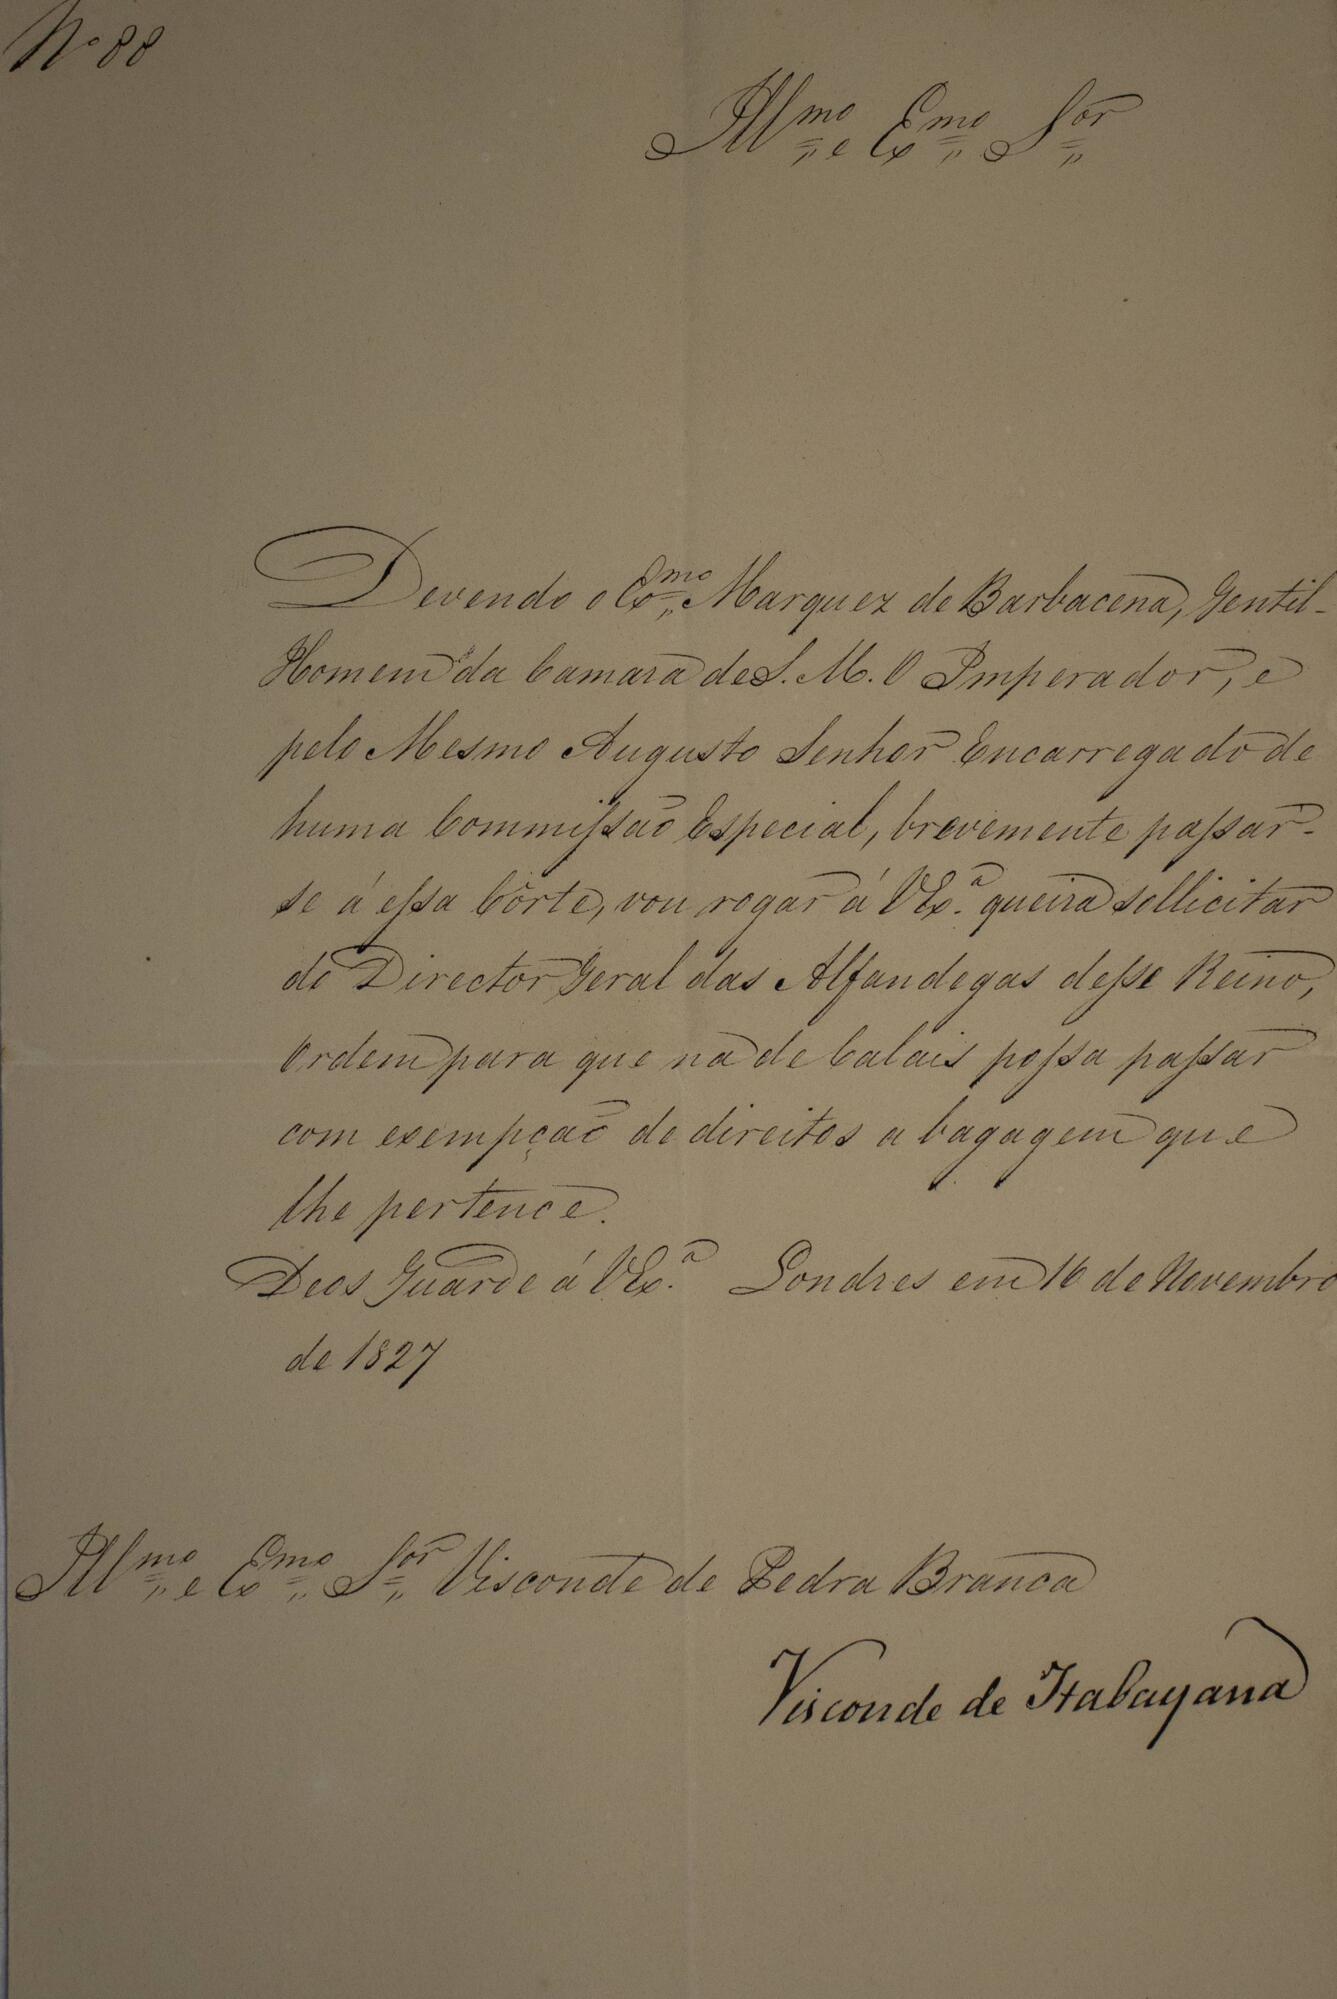 Nº 88
Illmo e Exmo Sor
Devendo o Exmo Marquez de Barbacena, Gentil-
Homem da Camara de S. M. O Imperador, e
pelo Mesmo Augusto Senhor Encarregado de
huma Commissão Especial, brevemente passar-
se á essa Côrte, vou rogar á VExª. queira sollicitar
do Director Geral das Alfandegas desse Reino,
Ordem para que na de Calais possa passar
com exempção de direitos a bagagem que
lhe pertence.
Deos Guarde á VExª. Londres em 16 de Novembro
de 1827
Illmo e Exmo Sor Visconde de Pedra Branca
Visconde de Itabayana